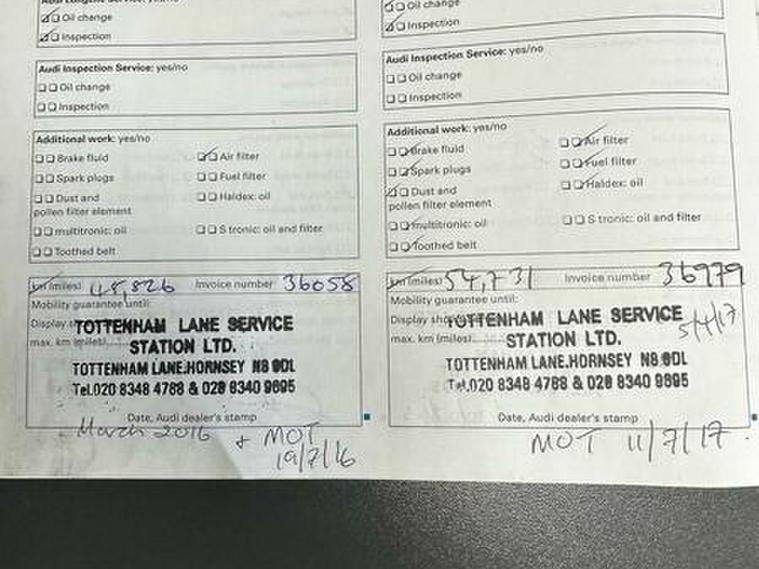 Oil change
Inspection
Audi Inspection Service: yes/no
Oil change
Inspection
Additional work: yes/no
Brake fluid
Air filter
Spark plugs
Fuel filter
Dust and
pollen filter element
Haldex: oil
multitronic: oil
S tronic: oil and filter
Toothed belt
km (miles) 45,826 Invoice number 36058
Mobility guarantee until:
Display
max. km (miles)
TOTTENHAM LANE SERVICE
STATION LTD.
TOTTENHAM LANE.HORNSEY N8 0DL
Tel.020 8348 4788 & 020 8340 9695
Date, Audi dealer's stamp
March 2016 + MOT
19/7/16
Oil change
Inspection
Audi Inspection Service: yes/no
Oil change
Inspection
Additional work: yes/no
Brake fluid
Air filter
Spark plugs
Fuel filter
Dust and
pollen filter element
Haldex: oil
multitronic: oil
S tronic: oil and filter
Toothed belt
km (miles) 54,731 Invoice number 36979
Mobility guarantee until:
Display
max. km (miles)
TOTTENHAM LANE SERVICE
STATION LTD.
TOTTENHAM LANE.HORNSEY N8 0DL
Tel.020 8348 4788 & 020 8340 9695
Date, Audi dealer's stamp
MOT 11/7/17